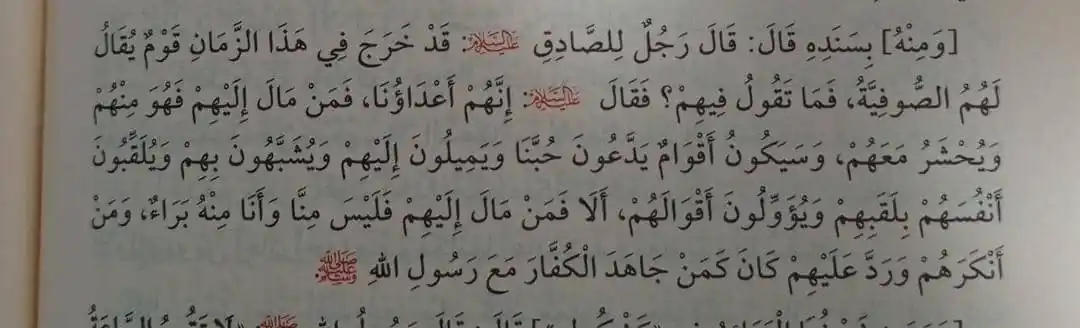 [وَمِنْهُ] بِسَنَدِهِ قَالَ: قَالَ رَجُلٌ لِلصَّادِقِ عَلَيْهِ السَّلَامُ: قَدْ خَرَجَ فِي هَذَا الزَّمَانِ قَوْمٌ يُقَالُ
لَهُمُ الصُّوفِيَّةُ، فَمَا تَقُولُ فِيهِمْ؟ فَقَالَ عَلَيْهِ السَّلَامُ: إِنَّهُمْ أَعْدَاؤُنَا، فَمَنْ مَالَ إِلَيْهِمْ فَهُوَ مِنْهُمْ
وَيُحْشَرُ مَعَهُمْ، وَسَيَكُونُ أَقْوَامٌ يَدَّعُونَ حُبَّنَا وَيَمِيلُونَ إِلَيْهِمْ وَيُشَبَّهُونَ بِهِمْ وَيُلَقِّبُونَ
أَنْفُسَهُمْ بِلَقَبِهِمْ وَيُؤَوِّلُونَ أَقْوَالَهُمْ، أَلَا فَمَنْ مَالَ إِلَيْهِمْ فَلَيْسَ مِنَّا وَأَنَا مِنْهُ بَرَاءٌ، وَمَنْ
أَنْكَرَهُمْ وَرَدَّ عَلَيْهِمْ كَانَ كَمَنْ جَاهَدَ الْكُفَّارَ مَعَ رَسُولِ اللهِ ﷺ.